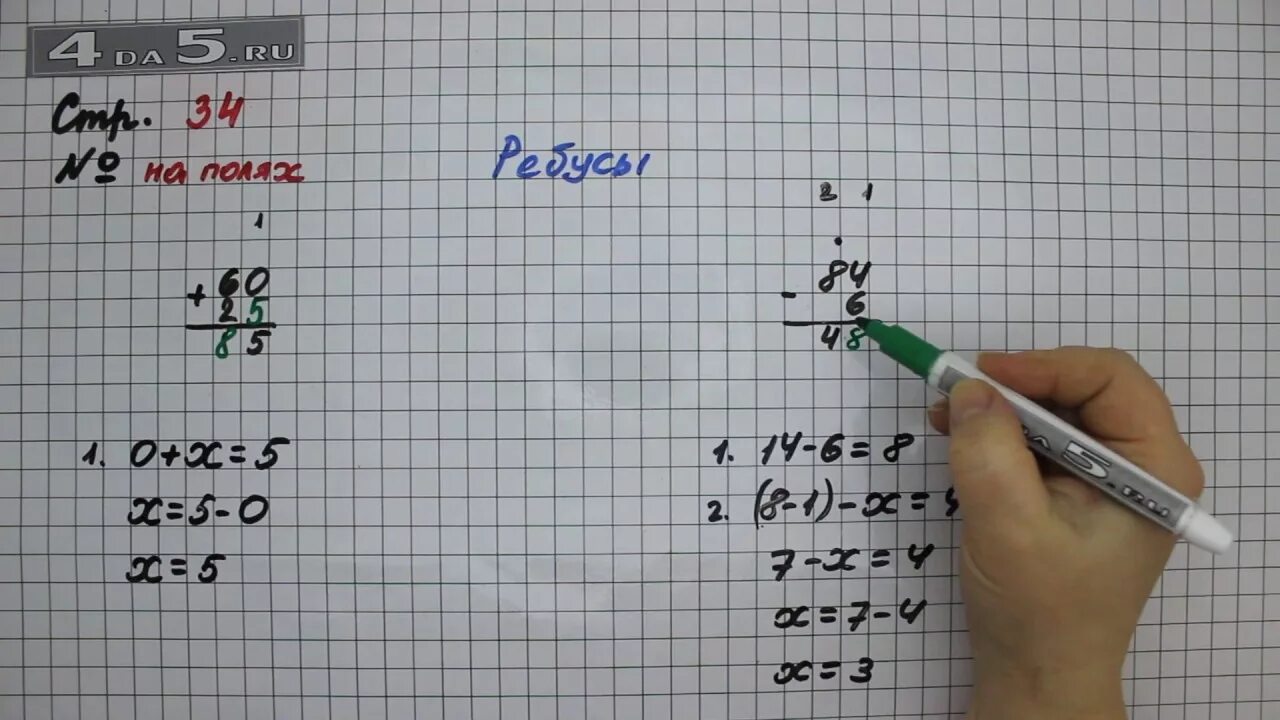 4DA5.RU
Стр. 34
№ на полях
Ребусы
1
+ 60
25
85
1. 0+x=5
x=5-0
x=5
1
84
- 6
48
1. 14-6=8
2. (8-1)-x=
7-x=4
x=7-4
x=3
DA5.RU